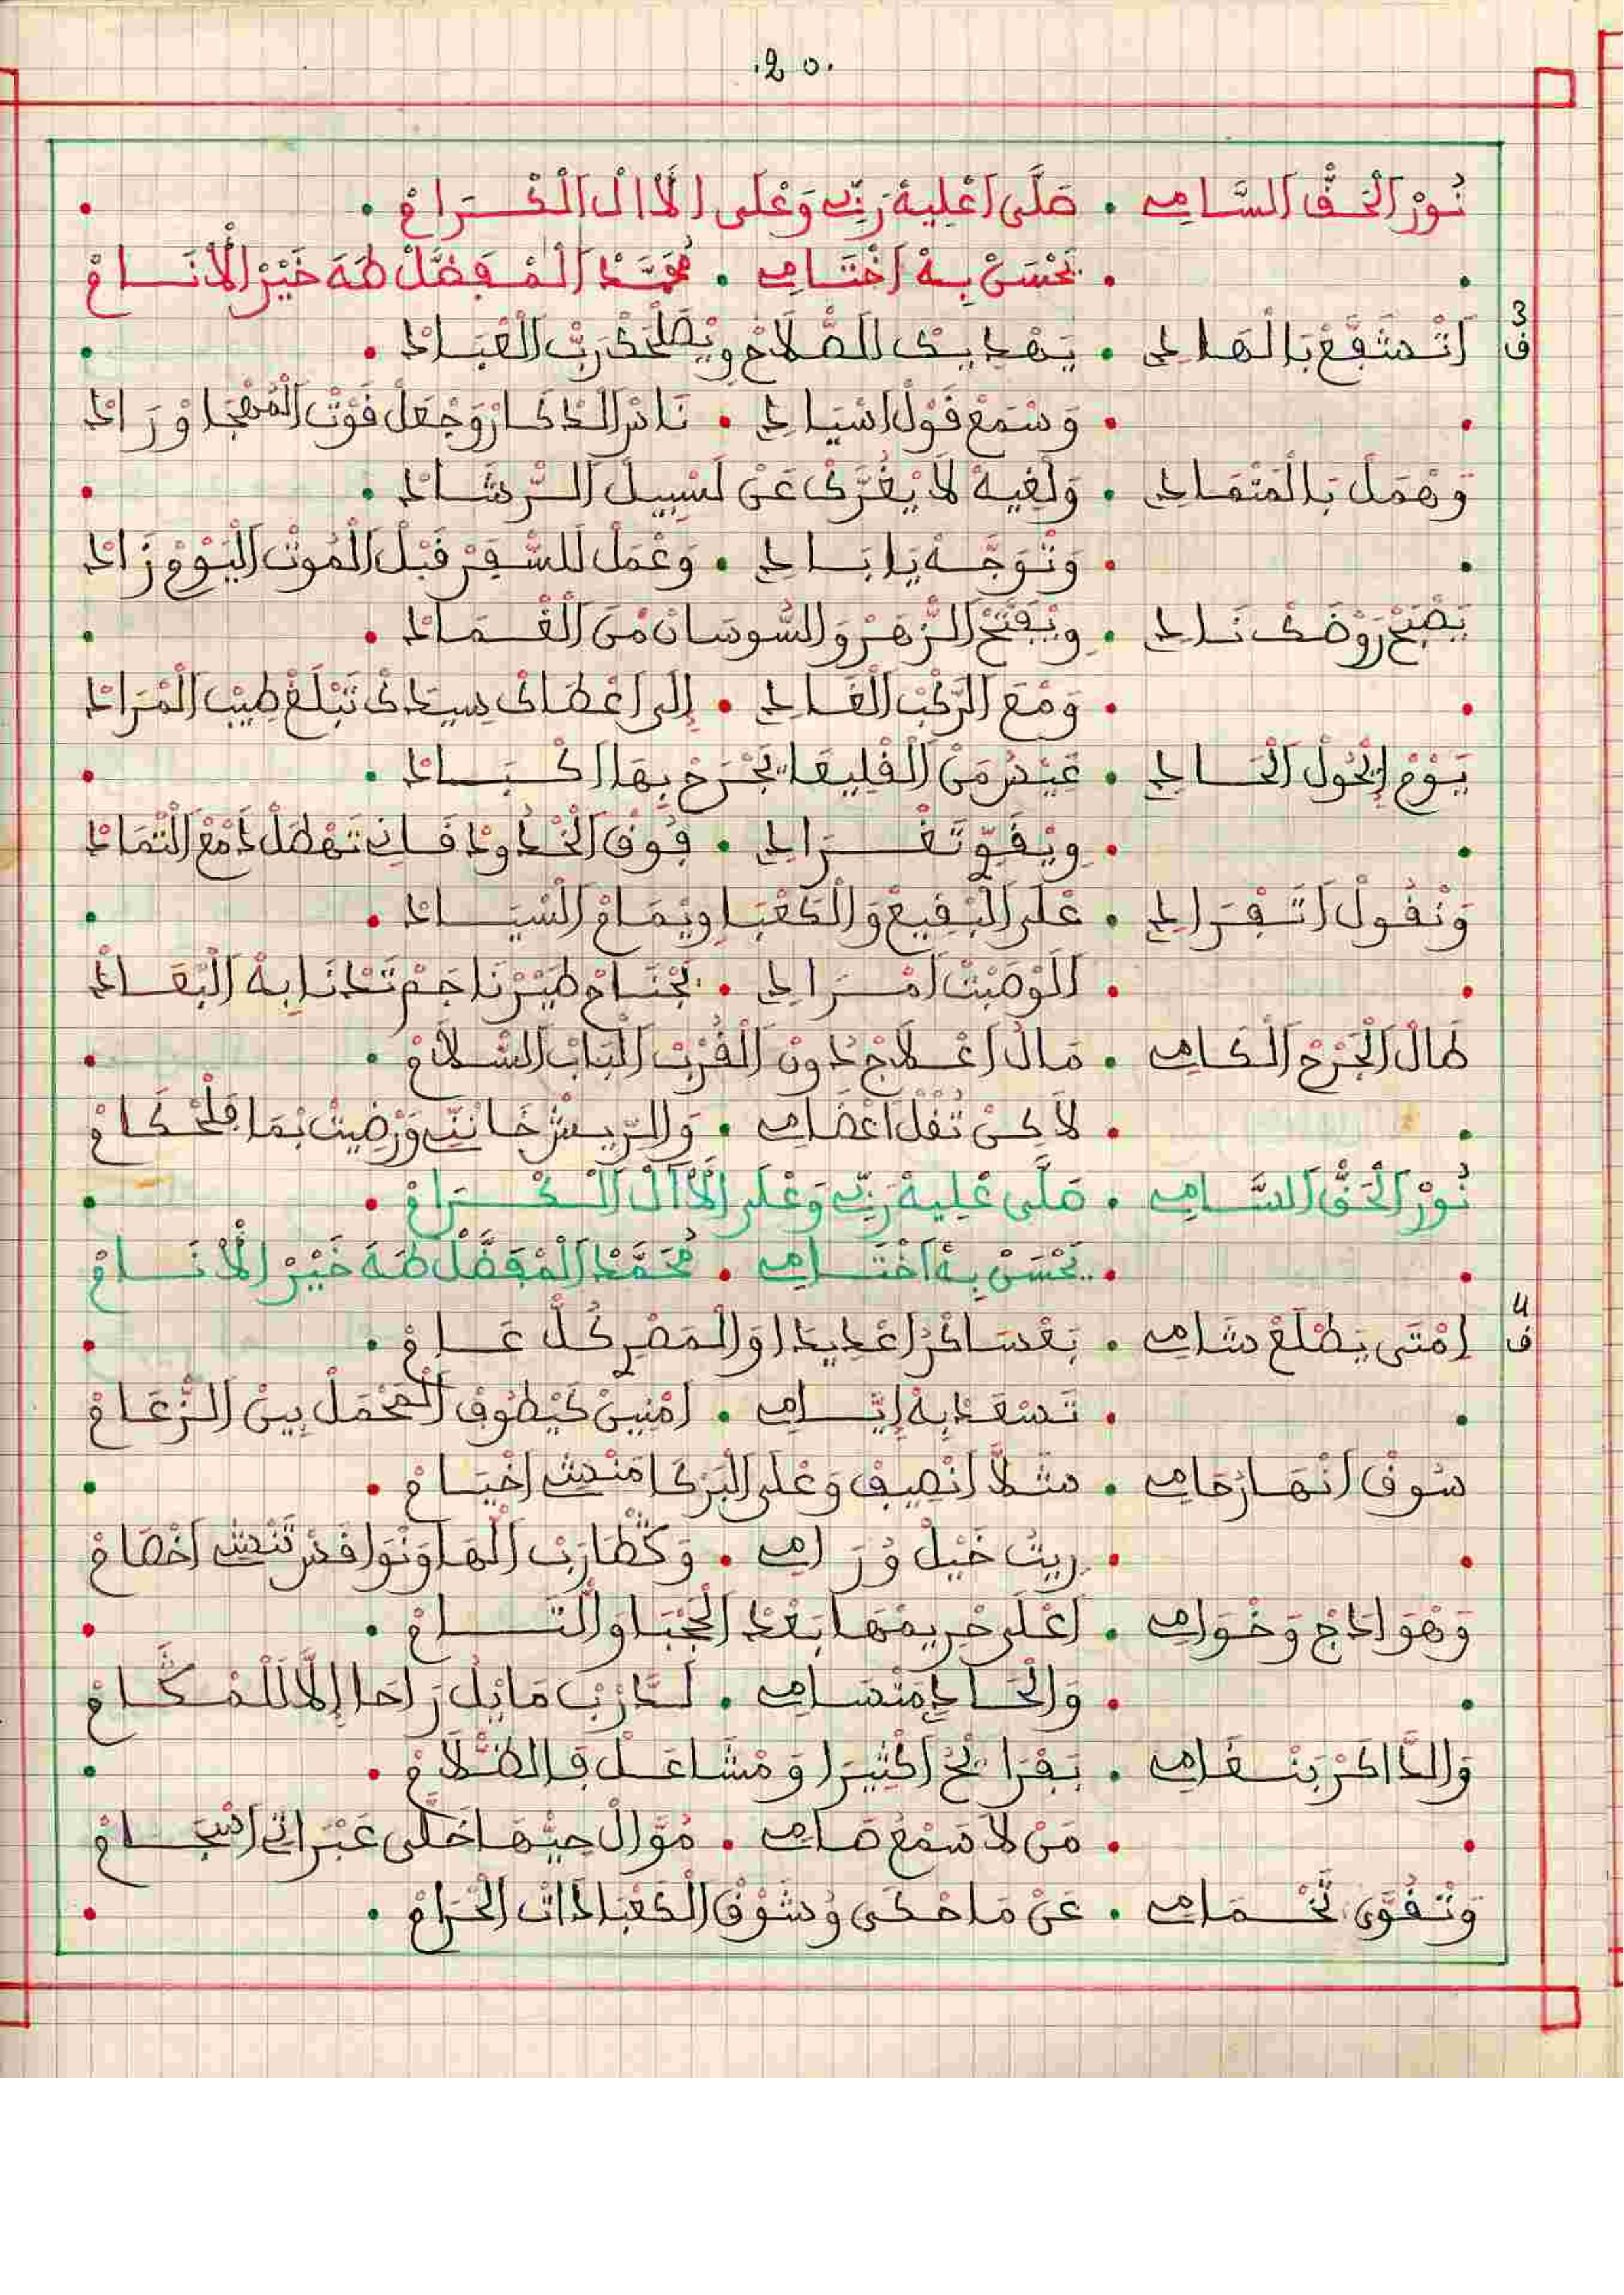 .20.
نُورْ الْحَقّْ السَّامِي • صَلَّى اعْلِيهْ رَبِّي وَعْلَى الْاَالْ الْكْرَامْ •
• يَحْسَنْ بِهْ اخْتَامِي • مُحَمَّدْ الْمْفَضَّلْ طَهَ خَيْرْ الْأَنَامْ
ف3 اتْشَفَّعْ بَالْهَادِي • يَهْدِيكْ الصّْلَاحْ وِيْصَلْحَكْ رَبّْ الْعْبَادْ •
• وَسْمَعْ قُولْ اسْيَادِي • نَاسْ الدْكَارْ وَجْعَلْ قُوتْ الْمُهْجَا وْرَادْ
وَهْمَلْ بَالْمَتْمَادِي • وَلْغِيهْ لَا يْغُرَّكْ عَنْ لَسْبِيلْ الرّْشَادْ •
• وَتْوَجَّهْ يَا بَادِي • وَعْمَلْ لَلسّْفَرْ قَبْلْ الْمُوتْ الْيَوْمْ زَادْ
يَصْبَحْ رَوْضَكْ نَادِي • وِيْفَتَّحْ الزّْهَرْ وَالسُّوسَانْ مْنَ الْغْمَادْ •
• وَمْعَ الرَّكْبْ الْغَادِي • إِلَى اعْطَاكْ سِيدَكْ تَبْلَغْ طِيبْ الْمْرَادْ
يَوْمْ إِيْحُولْ الْحَادِي • عِيدْ مَنْ الْفْلِيقَا يَجْرَحْ بِهَا اكْبَادْ •
• وِيْقَوِّي تَغْرَادِي • فُوقْ الْخْدُودْ فَانِي تَهْطَلْ دَمْعْ الْتْمَادْ
وَنْقُولْ اتَّفْرَادِي • عْلَى الْبْقِيعْ وَالْكَعْبَا وِيْمَامْ السْيَادْ •
• الَوْصَبْتْ امْرَادِي • بَجْنَاحْ طَيْرْنَا جَمْ تَدْنَا بِهْ الْبْعَادْ
طَالْ الْجَرْحْ الْكَامِي • مَالْ اعْلَاجْ دُونْ الْقُرْبْ الْبَابْ السّْلَامْ •
• لَاكِنْ تُقْلْ اعْضَامِي • وَالرِّيشْ خَانَنِّي وَرْضِيتْ بْمَا فَلْحْكَامْ
نُورْ الْحَقّْ السَّامِي • صَلَّى عْلِيهْ رَبِّي وَعْلَى الْاَالْ الْكْرَامْ •
• يَحْسَنْ بِهْ اخْتَامِي • مُحَمَّدْ الْمْفَضَّلْ طَهَ خَيْرْ الْأَنَامْ
ف4 امْتَى يَطْلَعْ شَامِي • بَعْسَاكْرُ اعْدِيدَا وَالْمَصْرِ كُلّْ عَامْ •
• تَسْعَدْ بِهْ إِيَّامِي • امْنِينْ كَيْطُوفْ الْمَحْمَلْ بِينْ الزّْعَامْ
سُوقْ انْهَارُ حَامِي • شَلَّا انْصِيفْ وَعْلَى الْبَرْكَا مَنْشِي اخْيَامْ •
• رِيتْ خَيْلْ وُرَامِي • وَكْطَارَبْ الْهَا وَنْوَاقَسْ تَنْشِي اخْصَامْ
وَهْوَادَجْ وَخْوَامِي • اعْلَى حْرِيمْهَا بَعْدْ الْحْجْبَا وَالْتَامْ •
• وَالْحَادِي مَتْسَامِي • لَدَّرْبْ مَايْلُ رَاحَا إِلَّا لَلْمْكَامْ
وَالدَّاكَرْ بَنْغَامِي • بَقْرَايْحْ اكْثِيرَا وَمْشَاعَلْ فَالظّْلَامْ •
• مَنْ لَا سْمَعْ صَامِي • مُوَّالْ حِيّْهَا خَلَّى عَبْرَاتِي اسْجَامْ
وَتْقَوَّى تَخْمَامِي • عَنْ مَا حْكَى وُشَوْقْ الْكَعْبَا دَاتْ الْحْرَامْ •